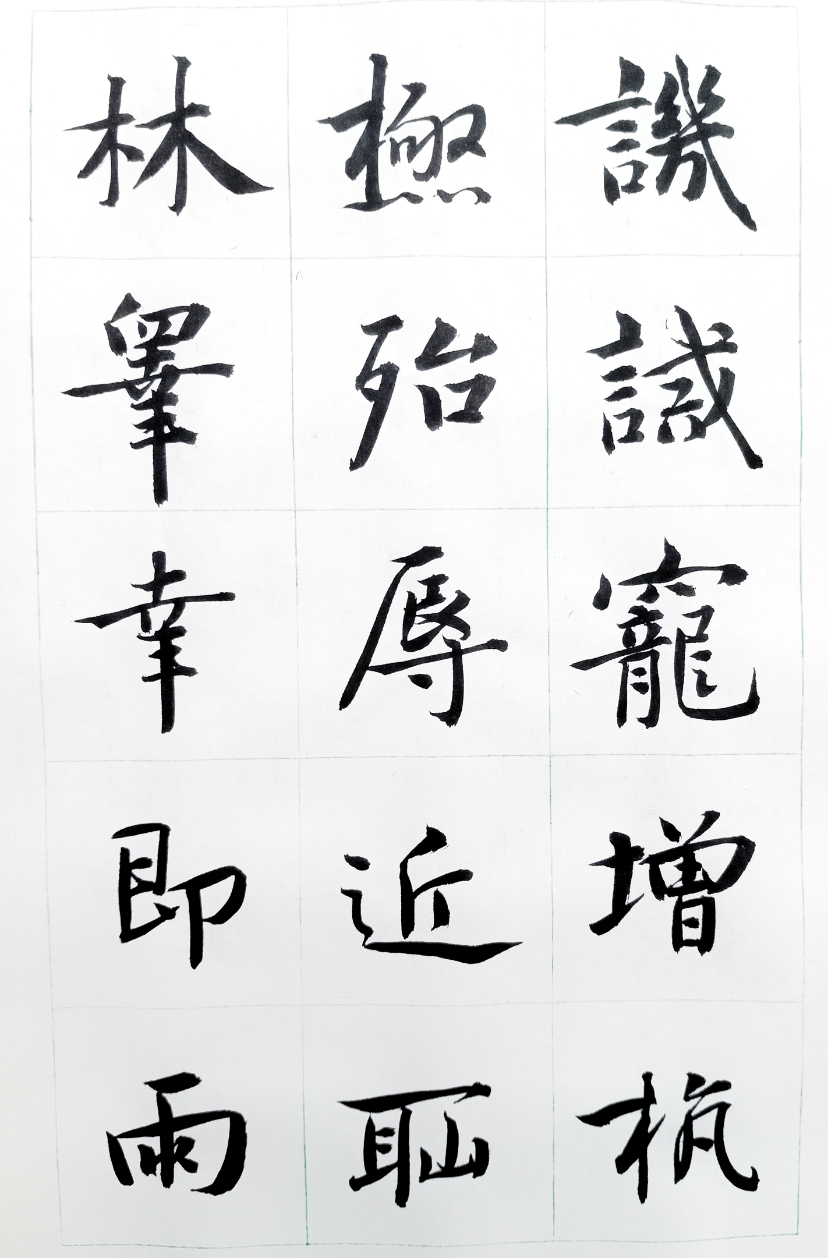 譏誡寵增抗
極殆辱近耻
林皋幸即兩